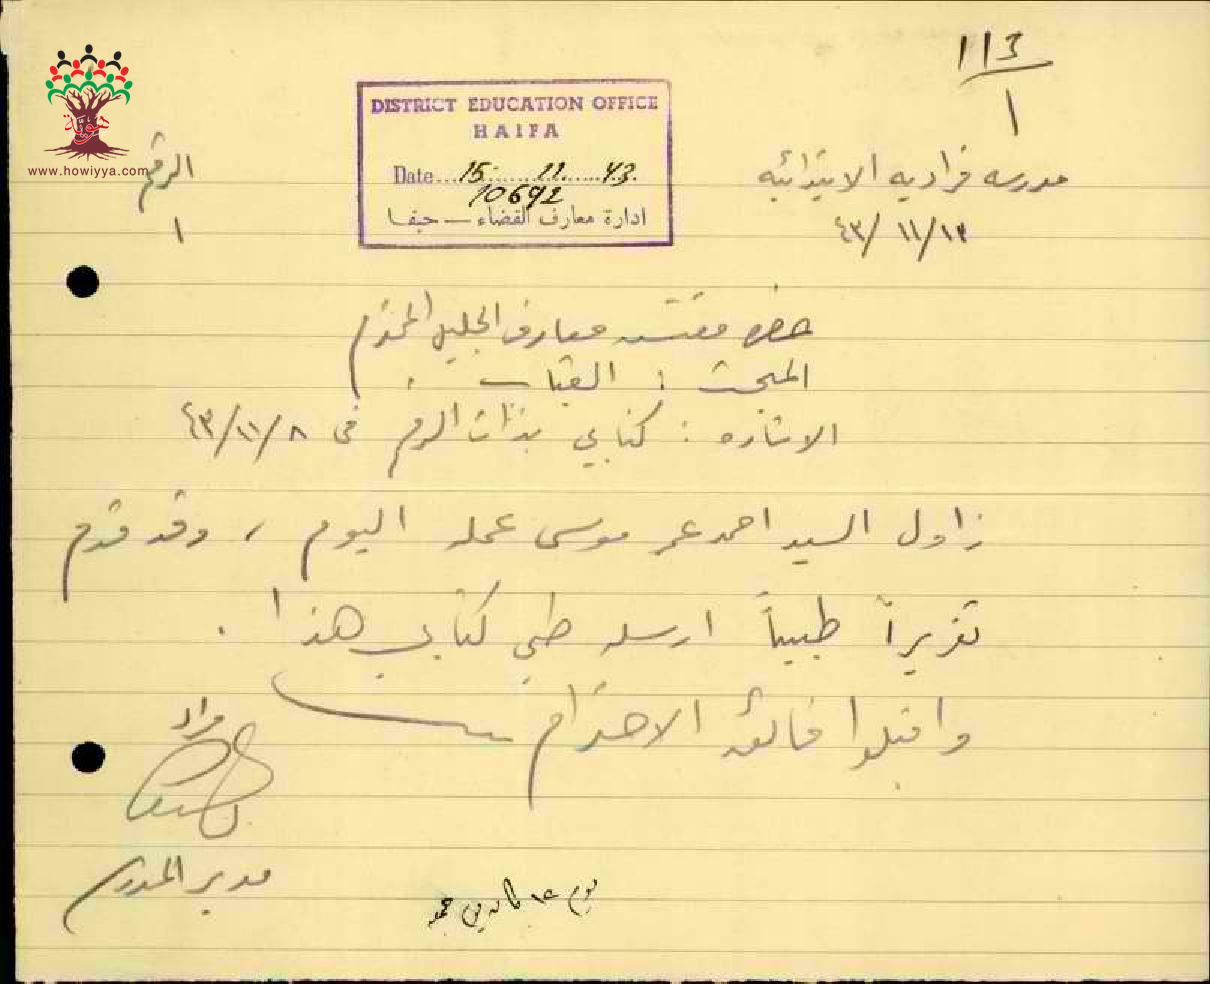 113
1
DISTRICT EDUCATION OFFICE
HAIFA
Date...15......11......43.
10692
ادارة معارف القضاء — حيفا
www.howiyya.com
الرقم
١
مدرسه فراديه الابتدائيه
٤٣/١١/١٣
حضرة مفتش معارف الجليل المحترم
المبحث : الغياب .
الاشاره : كتابي بذات الرقم في ٤٣/١١/٨
زاول السيد احمد عمر موسى عمله اليوم ، وقد قدم
تقريراً طبياً ارسله طي كتابي هذا .
واقبلوا فائق الاحترام
مراد
مدير المدرسة
يوم